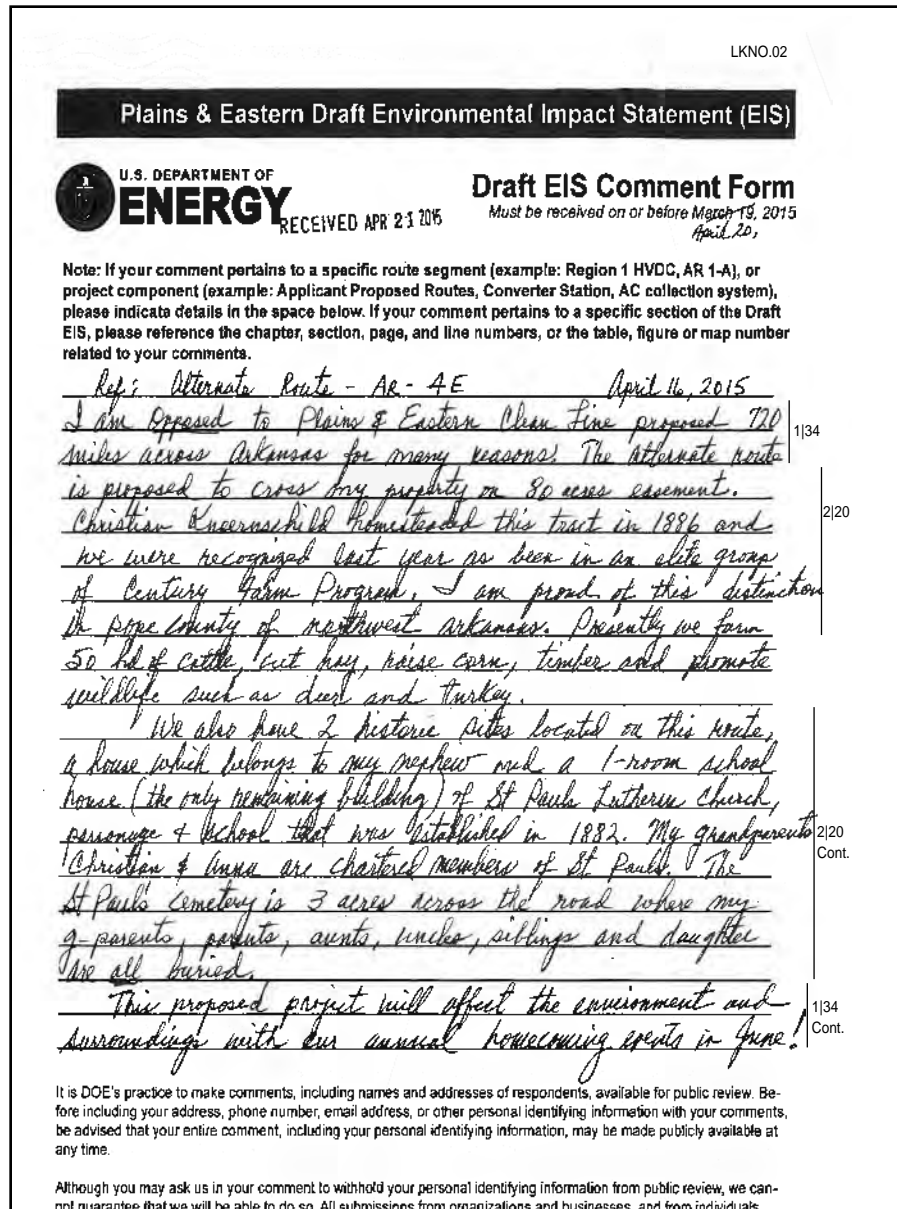 LKNO.02
Plains & Eastern Draft Environmental Impact Statement (EIS)
U.S. DEPARTMENT OF
ENERGY
RECEIVED APR 23 2015
Draft EIS Comment Form
Must be received on or before March 19, 2015
April 20,
Note: If your comment pertains to a specific route segment (example: Region 1 HVDC, AR 1-A), or
project component (example: Applicant Proposed Routes, Converter Station, AC collection system),
please indicate details in the space below. If your comment pertains to a specific section of the Draft
EIS, please reference the chapter, section, page, and line numbers, or the table, figure or map number
related to your comments.
Ref: Alternate Route - AR - 4E April 16, 2015
I am Opposed to Plains & Eastern Clean Line proposed 720
miles across Arkansas for many reasons. The Alternate route
1|34
is proposed to cross my property on 80 acres easement.
Christian homesteaded this tract in 1886 and
2|20
we were recognized last year as been in an elite group
of Century Farm Program. I am proud of this distinction
in pope county of northwest arkansas. Presently we farm
50 hd of cattle, cut hay, raise corn, timber and promote
wildlife such as deer and turkey.
We also have 2 historic sites located on this route,
a house which belongs to my nephew and a 1-room school
house (the only remaining building) of St Pauls Lutheran Church,
parsonage & school that was established in 1882. My grandparents
2|20
Cont.
Christian & Anna are chartered members of St Pauls. The
St Paul's Cemetery is 3 acres across the road where my
g-parents, parents, aunts, uncles, siblings and daughter
are all buried.
This proposed project will affect the environment and
1|34
Cont.
surroundings with our annual homecoming events in June!
It is DOE's practice to make comments, including names and addresses of respondents, available for public review. Be-
fore including your address, phone number, email address, or other personal identifying information with your comments,
be advised that your entire comment, including your personal identifying information, may be made publicly available at
any time.
Although you may ask us in your comment to withhold your personal identifying information from public review, we can-
not guarantee that we will be able to do so. All submissions from organizations and businesses, and from individuals